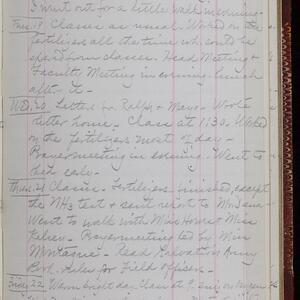 I went out for a little walk
Tues. 19 Classes as usual. Worked on the
fertilizers all the time which could be
spared from classes. Head Meeting &
Faculty Meeting in evening.
after
Wed. 20 Letters fr. Ralph & Mayo - Wrote
letter home - Class at 11:30. Worked
on the fertilizers most of day -
Prayermeeting in evening. Went to
bed early -
Thurs. 21 Classes. Fertilizers finished, except
the NH3 test & sent report to Mr.
Went to walk with Miss & Miss
- Prayermeeting led by Miss
Montague - Read Salvation Army
Rules for Field Officers -
Fri. 22 Warm bright day. Class at 9.